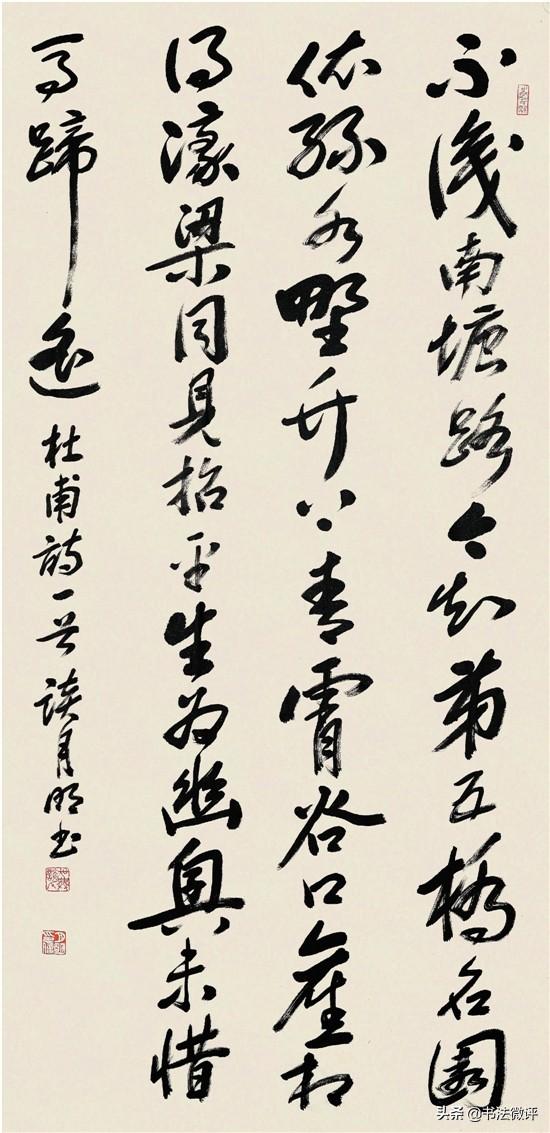 不識南塘路今知第五橋名園
依綠水野竹上青霄谷口舊相
得濠梁同見招平生為幽興未惜
馬蹄遙
杜甫詩一首 談月明书
头条 @书法微评